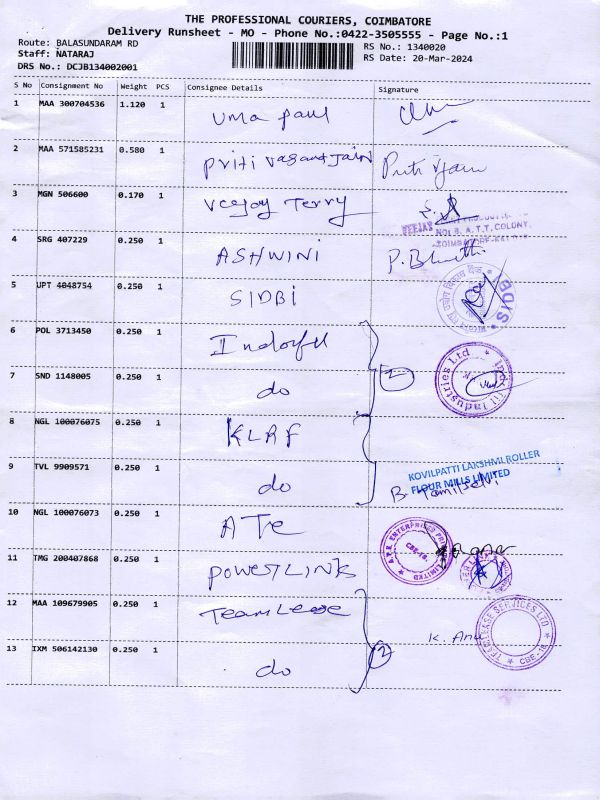 THE PROFESSIONAL COURIERS, COIMBATORE
Delivery Runsheet - MO - Phone No.:0422-3505555 - Page No.:1
Route: BALASUNDARAM RD
RS No.: 1340020
Staff: NATARAJ
RS Date: 20-Mar-2024
DRS No.: DCJB134002001
S No Consignment No Weight PCS Consignee Details Signature
1 MAA 300704536 1.120 1 Uma paul
2 MAA 571585231 0.580 1 Priti vasant Jain Priti Jain
3 MGN 506600 0.170 1 Veejay Terry
VEEJAY
NO: 8, A.T.T. COLONY,
COIMBATORE
4 SRG 407229 0.250 1 ASHWINI P.
5 UPT 4048754 0.250 1 SIDBI
SIDBI
6 POL 3713450 0.250 1
7 SND 1148005 0.250 1 do 2
Indofil Industries Ltd
8 NGL 100076075 0.250 1 KLRF
9 TVL 9909571 0.250 1 do
KOVILPATTI LAKSHMI ROLLER
FLOUR MILLS LIMITED
B. Tamilselvi
10 NGL 100076073 0.250 1 ATE
A.T.E. ENTERPRISES PRIVATE LIMITED
CBE-18.
11 TMG 200407868 0.250 1 POWERLINKS
12 MAA 109679905 0.250 1 TeamLease
K. Anu
TEAMLEASE SERVICES LTD
CBE-18
13 IXM 506142130 0.250 1 do 2